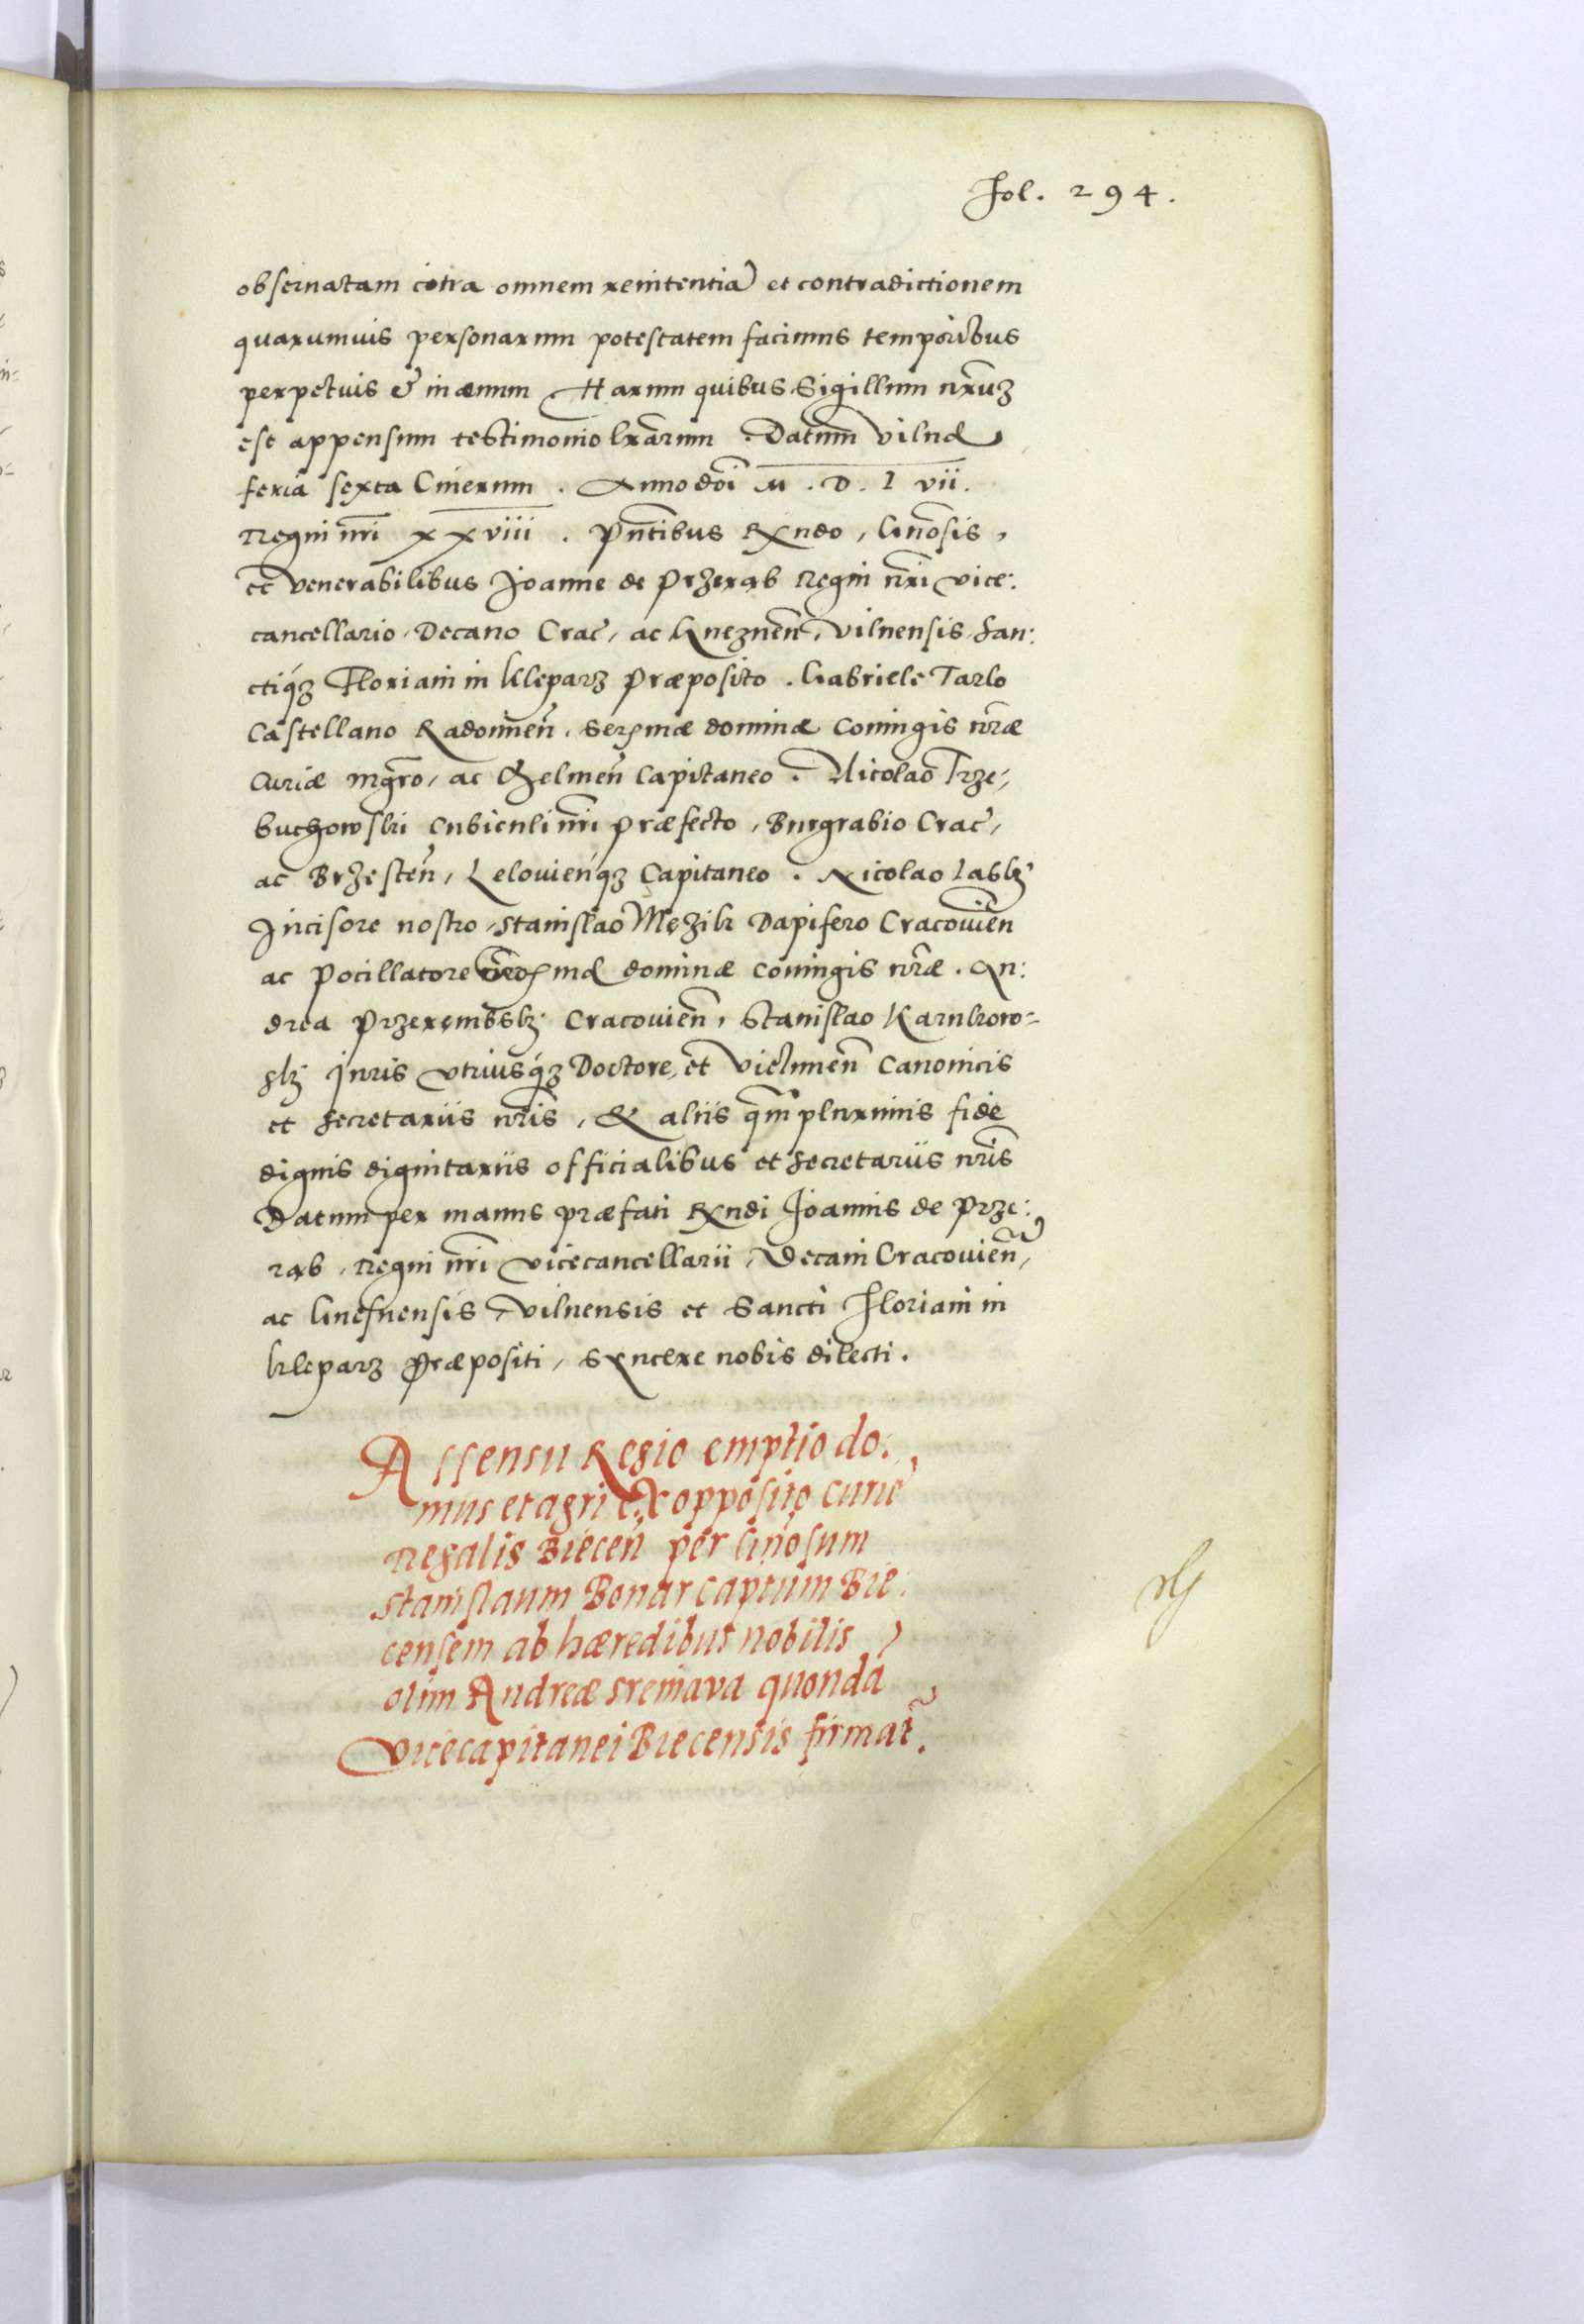 Fol. 294.
obseruatam cõtra omnem renitentiã et contradictionem
quarumuis personarum potestatem facimus temporibus
perpetuis & in æuum Harum quibus Sigillum nr̃uʒ
est appensum testimonio lrãrum. Datum vilnæ
feria sexta Cinerum. Anno doĩ M. D. l vii.
Regni nr̃i xxviii. Pñtibus Rx̃ndo, Gnõsis,
et venerabilibus Joanne de Przeręb Regni nr̃i vice:
cancellario, Decano Crac̃, ac Gneznen̄, vilnensis, San:
ctiqʒ Floriani in Kleparz Præposito. Gabriele Tarlo
Castellano Radomien̄, Serx̃mæ dominæ coniugis nr̃æ
Curiæ mgr̃o, ac Chelmen̄ Capitaneo. Nicolao Trze,
buchowski cubiculi nr̃i præfecto, Burgrabio Crac̃,
ac Brzesten̄, Lelovien̄qʒ Capitaneo. Nicolao Lasky
Incisore nostro, Stanislao Mężik Dapifero Cracouien̄
ac Pocillatore mæ dominæ coniugis nr̃æ. An:
drea Przerembsky Cracouien̄, Stanislao Karnkow=
sky Juris vtriusqʒ Doctore, et Vielunien̄ Canonicis
et Secretariis nr̃is, & aliis q̃mplurimis fide
dignis dignitariis officialibus et Secretariis nr̃is
Datum per manus præfati Rx̃ndi Joannis de Prze:
ręb, Regni nr̃i vicecancellarii, Decani Cracouien̄,
ac Gnesnensis, vilnensis et Sancti Floriani in
kleparz Præpositi, syncere nobis dilecti.
Assensu Regio emptio do:
mus et agri ex opposito curiẽ
Regalis Biecen̄ per Gnõsum
Stanislaum Bonar captum Bie:
censem ab hæredibus nobilis
olim Andreæ Sreniava quondã
Vicecapitanei Biecensis firmat̃.